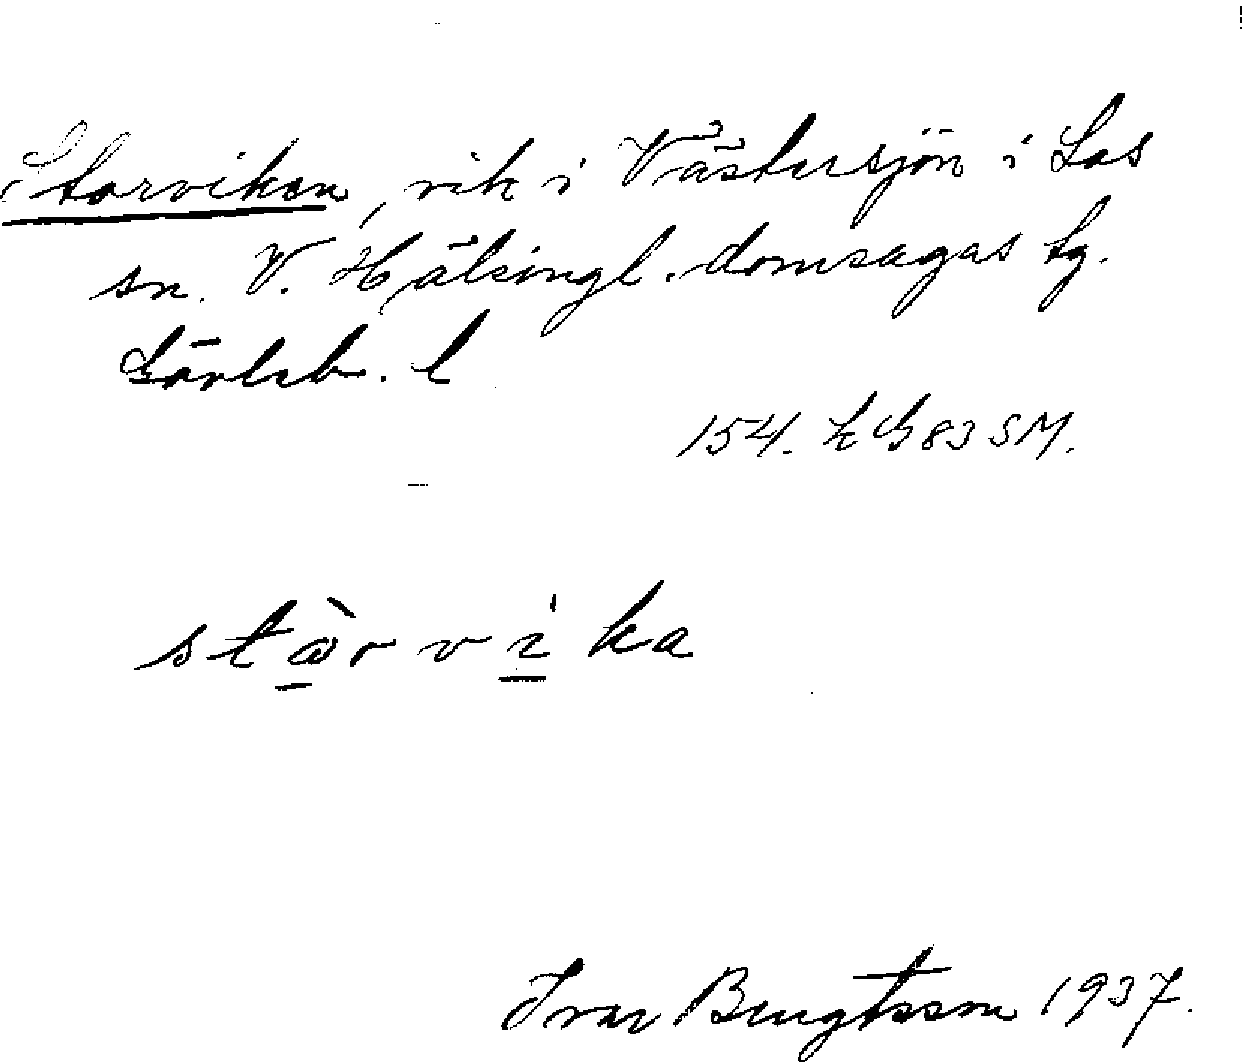 Storviken, vik i Västersjön i Los
sn. V. Hälsingl. domsagas tg.
Gävleb. l
154. k G 83 SM.
stòrvi'ka
Ivar Bengtsson 1937.